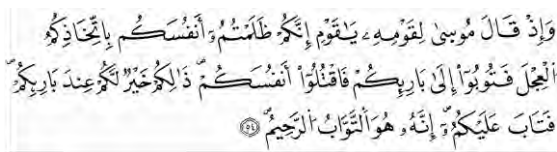 وَإِذْ قَالَ مُوسَىٰ لِقَوْمِهِۦ يَٰقَوْمِ إِنَّكُمْ ظَلَمْتُمُۥٓ أَنفُسَكُم بِاتِّخَاذِكُمُ
اُلْعِجْلَ فَتُوبُوٓاْ إِلَىٰ بَارِئِكُمْ فَاقْتُلُوٓاْ أَنفُسَكُمْ ذَٰلِكُمْ خَيْرٌ لَّكُمْ عِندَ بَارِئِكُمْ
فَتَابَ عَلَيْكُمُۥٓ إِنَّهُۥ هُوَ اَلتَّوَّابُ اُلرَّحِيمُ ٥٤